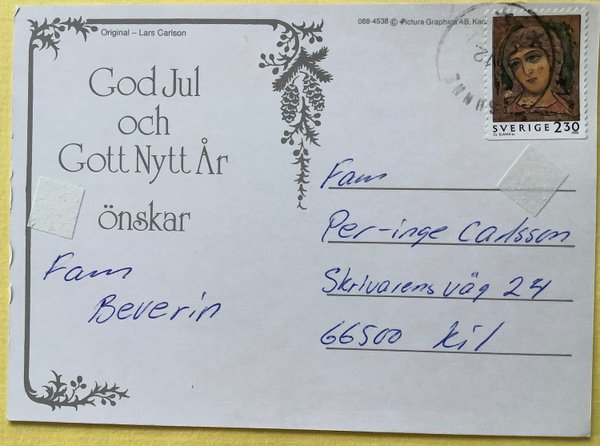 Original – Lars Carlson
088-4538 © Pictura Graphica AB, Kar
God Jul
och
Gott Nytt År
önskar
Fam
Beverin
SVERIGE 2.30
Fam
Per-inge Carlsson
Skrivarens väg 24
66500 Kil